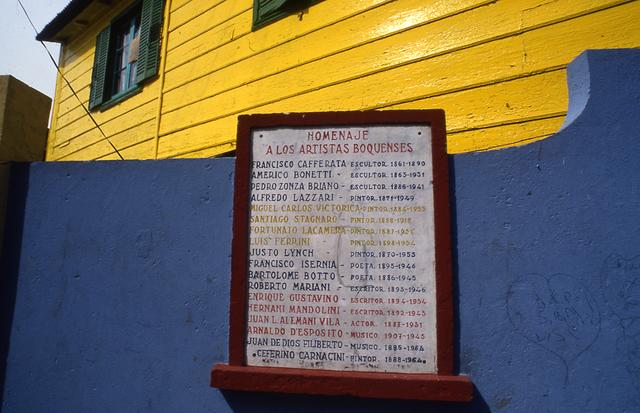 HOMENAJE
A LOS ARTISTAS BOQUENSES
FRANCISCO CAFFERATA - ESCULTOR. 1861-1890
AMERICO BONETTI - ESCULTOR. 1865-1931
PEDRO ZONZA BRIANO - ESCULTOR. 1886-1941
ALFREDO LAZZARI - PINTOR. 1871-1949
MIGUEL CARLOS VICTORICA - PINTOR. 1884-1955
SANTIAGO STAGNARO - PINTOR. 1888-1918
FORTUNATO LACAMERA - PINTOR. 1887-1951
LUIS FERRINI - PINTOR. 1898-1954
JUSTO LYNCH - PINTOR. 1870-1953
FRANCISCO ISERNIA - POETA. 1895-1946
BARTOLOME BOTTO - POETA. 1886-1945
ROBERTO MARIANI - ESCRITOR. 1893-1946
ENRIQUE GUSTAVINO - ESCRITOR. 1894-1954
HERNANI MANDOLINI - ESCRITOR. 1892-1945
JUAN L. ALEMANI VILA - ACTOR. 1887-1931
ARNALDO D'ESPOSITO - MUSICO. 1907-1945
JUAN DE DIOS FILIBERTO - MUSICO. 1885-1964
CEFERINO CARNACINI - PINTOR. 1888-1964